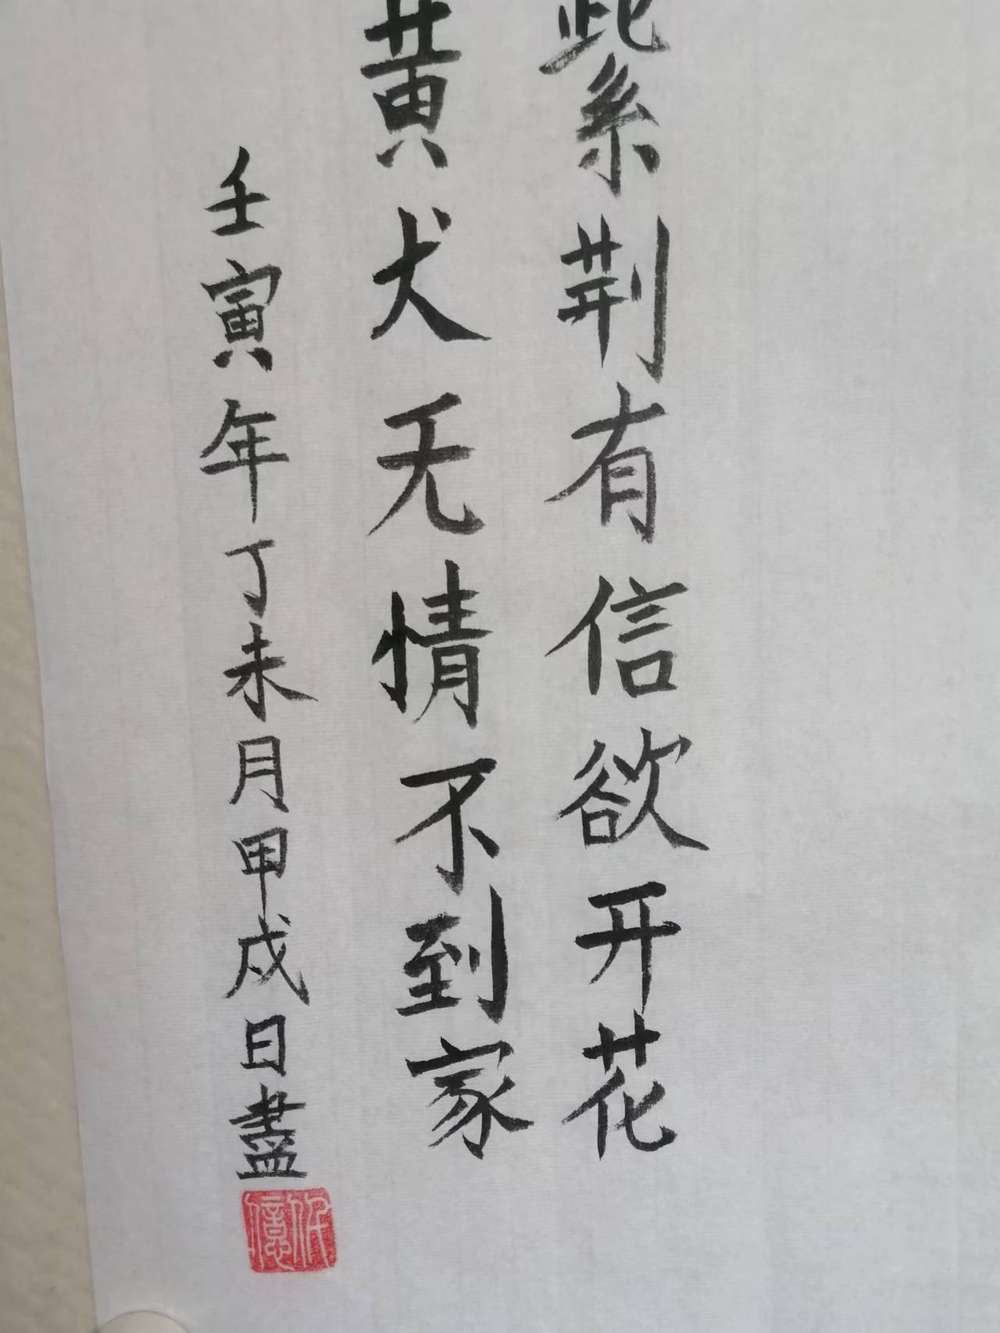 紫荆有信欲开花
黄犬无情不到家
壬寅年丁未月甲戌日盡